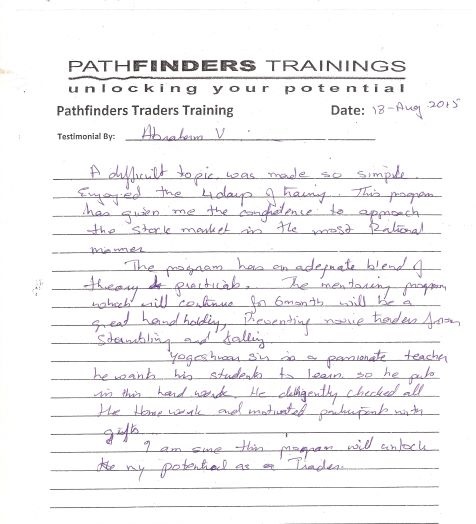 PATHFINDERS TRAININGS
unlocking your potential
Pathfinders Traders Training Date: 18-Aug 2015
Testimonial By: Abraham V
A difficult topic was made so simple.
Enjoyed the 4 days of training. This program
has given me the competence to approach
the stock market in the most Rational
manner.
The program has an adequate blend of
theory & practicals. The mentoring program
which will continue for 6 month will be a
great hand holding, Preventing novice traders from
Stumbling and falling
Yogeshwar sir is a passionate teacher
he wants his students to learn so he puts
in this hard work. He diligently checked all
the Home work and motivated participants with
gifts.
I am sure this program will unlock
the my potential as a Trader.